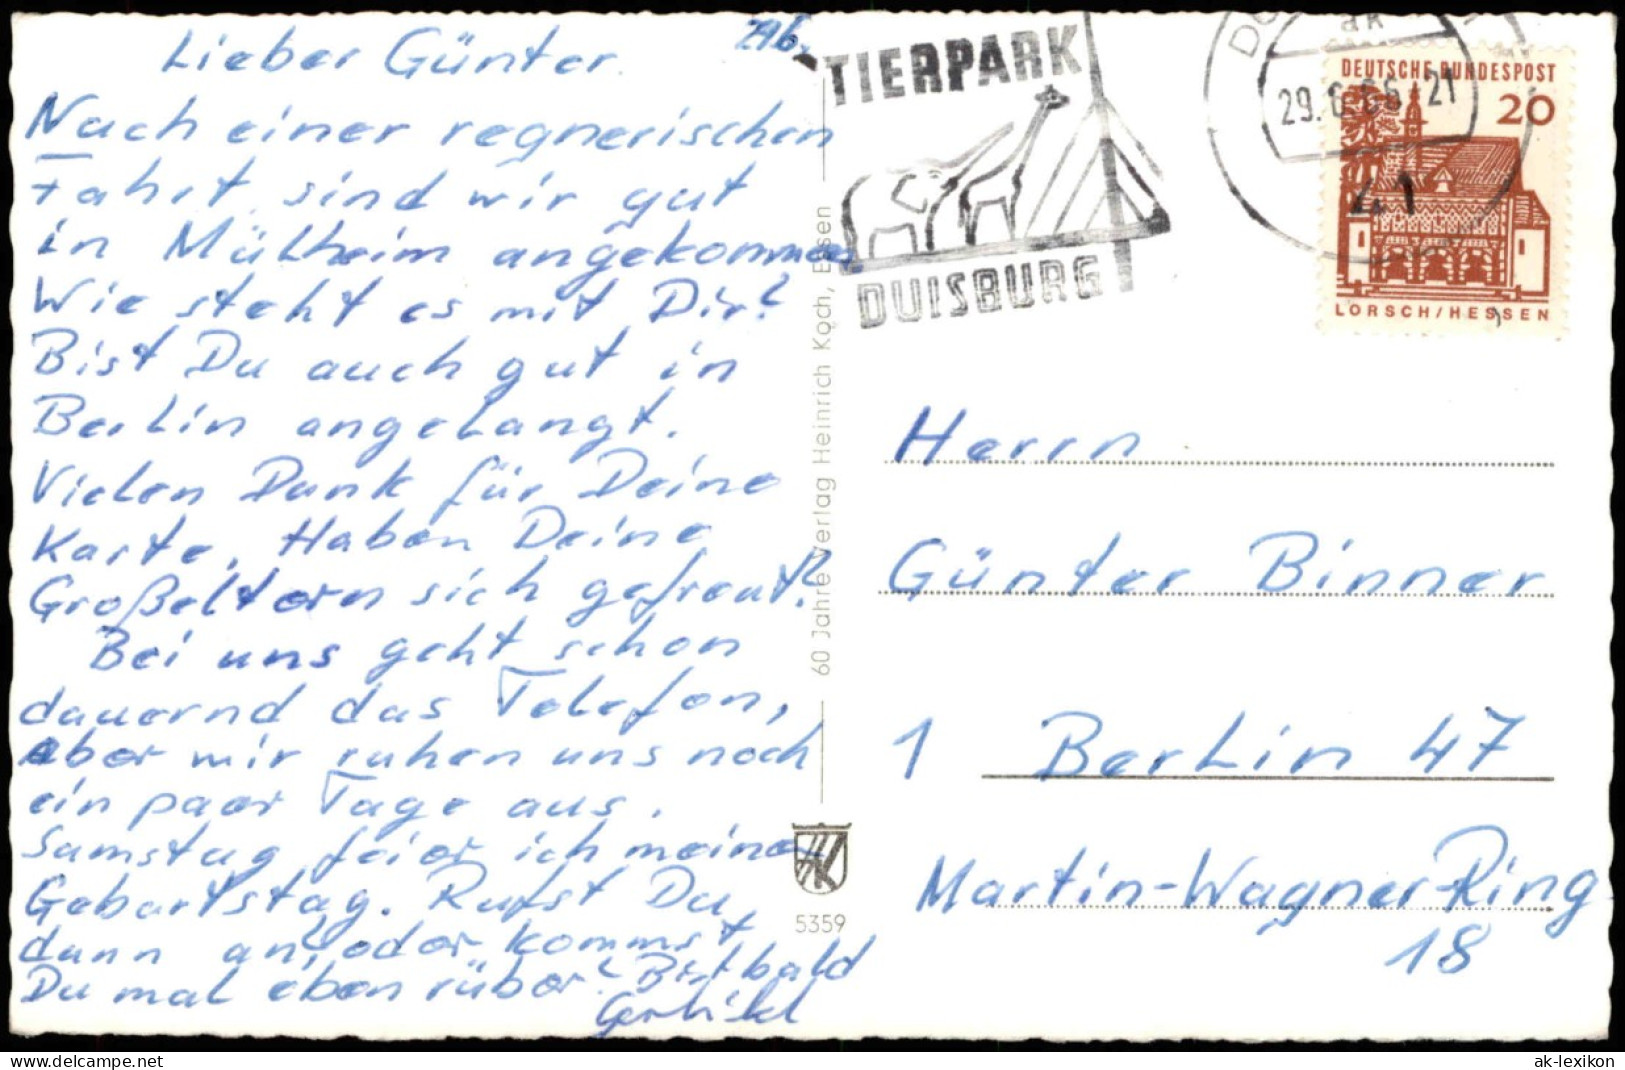 Lieber Günter
Nach einer regnerischen
Fahrt sind wir gut
in Mülheim angekommen
Wie steht es mit Dir?
Bist Du auch gut in
Berlin angelangt.
Vielen Dank für Deine
Karte. Haben Deine
Großeltern sich gefreut?
Bei uns geht schon
dauernd das Telefon,
aber wir ruhen uns noch
ein paar Tage aus.
Samstag feier ich meinen
Geburtstag. Rufst Du
dann an, oder kommst
Du mal eben rüber? Bist bald
60 Jahre Verlag Heinrich Koch, Essen
5359
TIERPARK
DUISBURG
29.6.66-21
41
DEUTSCHE BUNDESPOST
20
LORSCH/HESSEN
Herrn
Günter Binner
1 Berlin 47
Martin-Wagner-Ring
18
www.delcampe.net
ak-lexikon